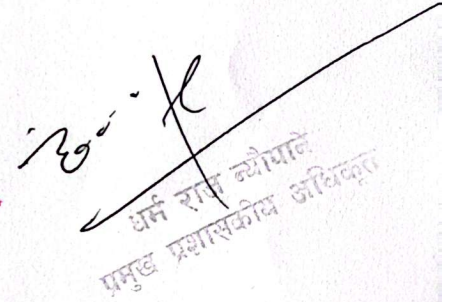 धर्म राज न्यौपाने
प्रमुख प्रशासकीय अधिकृत